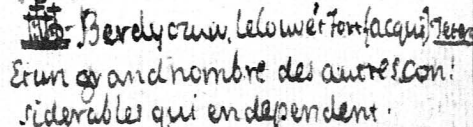 - Berdyczow, le louvet Fort (acquis)
Et un grand nombre des autres con:
siderables qui en dependent.